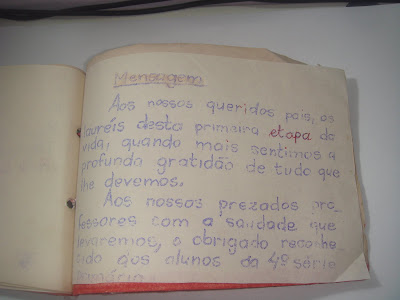 Mensagem
Aos nossos queridos pais, os
lauréis desta primeira etapa da
vida, quando mais sentimos a
profunda gratidão de tudo que
lhe devemos.
Aos nossos prezados pro-
fessores com a saudade que
levaremos, o obrigado reconhe-
cido dos alunos da 4º série